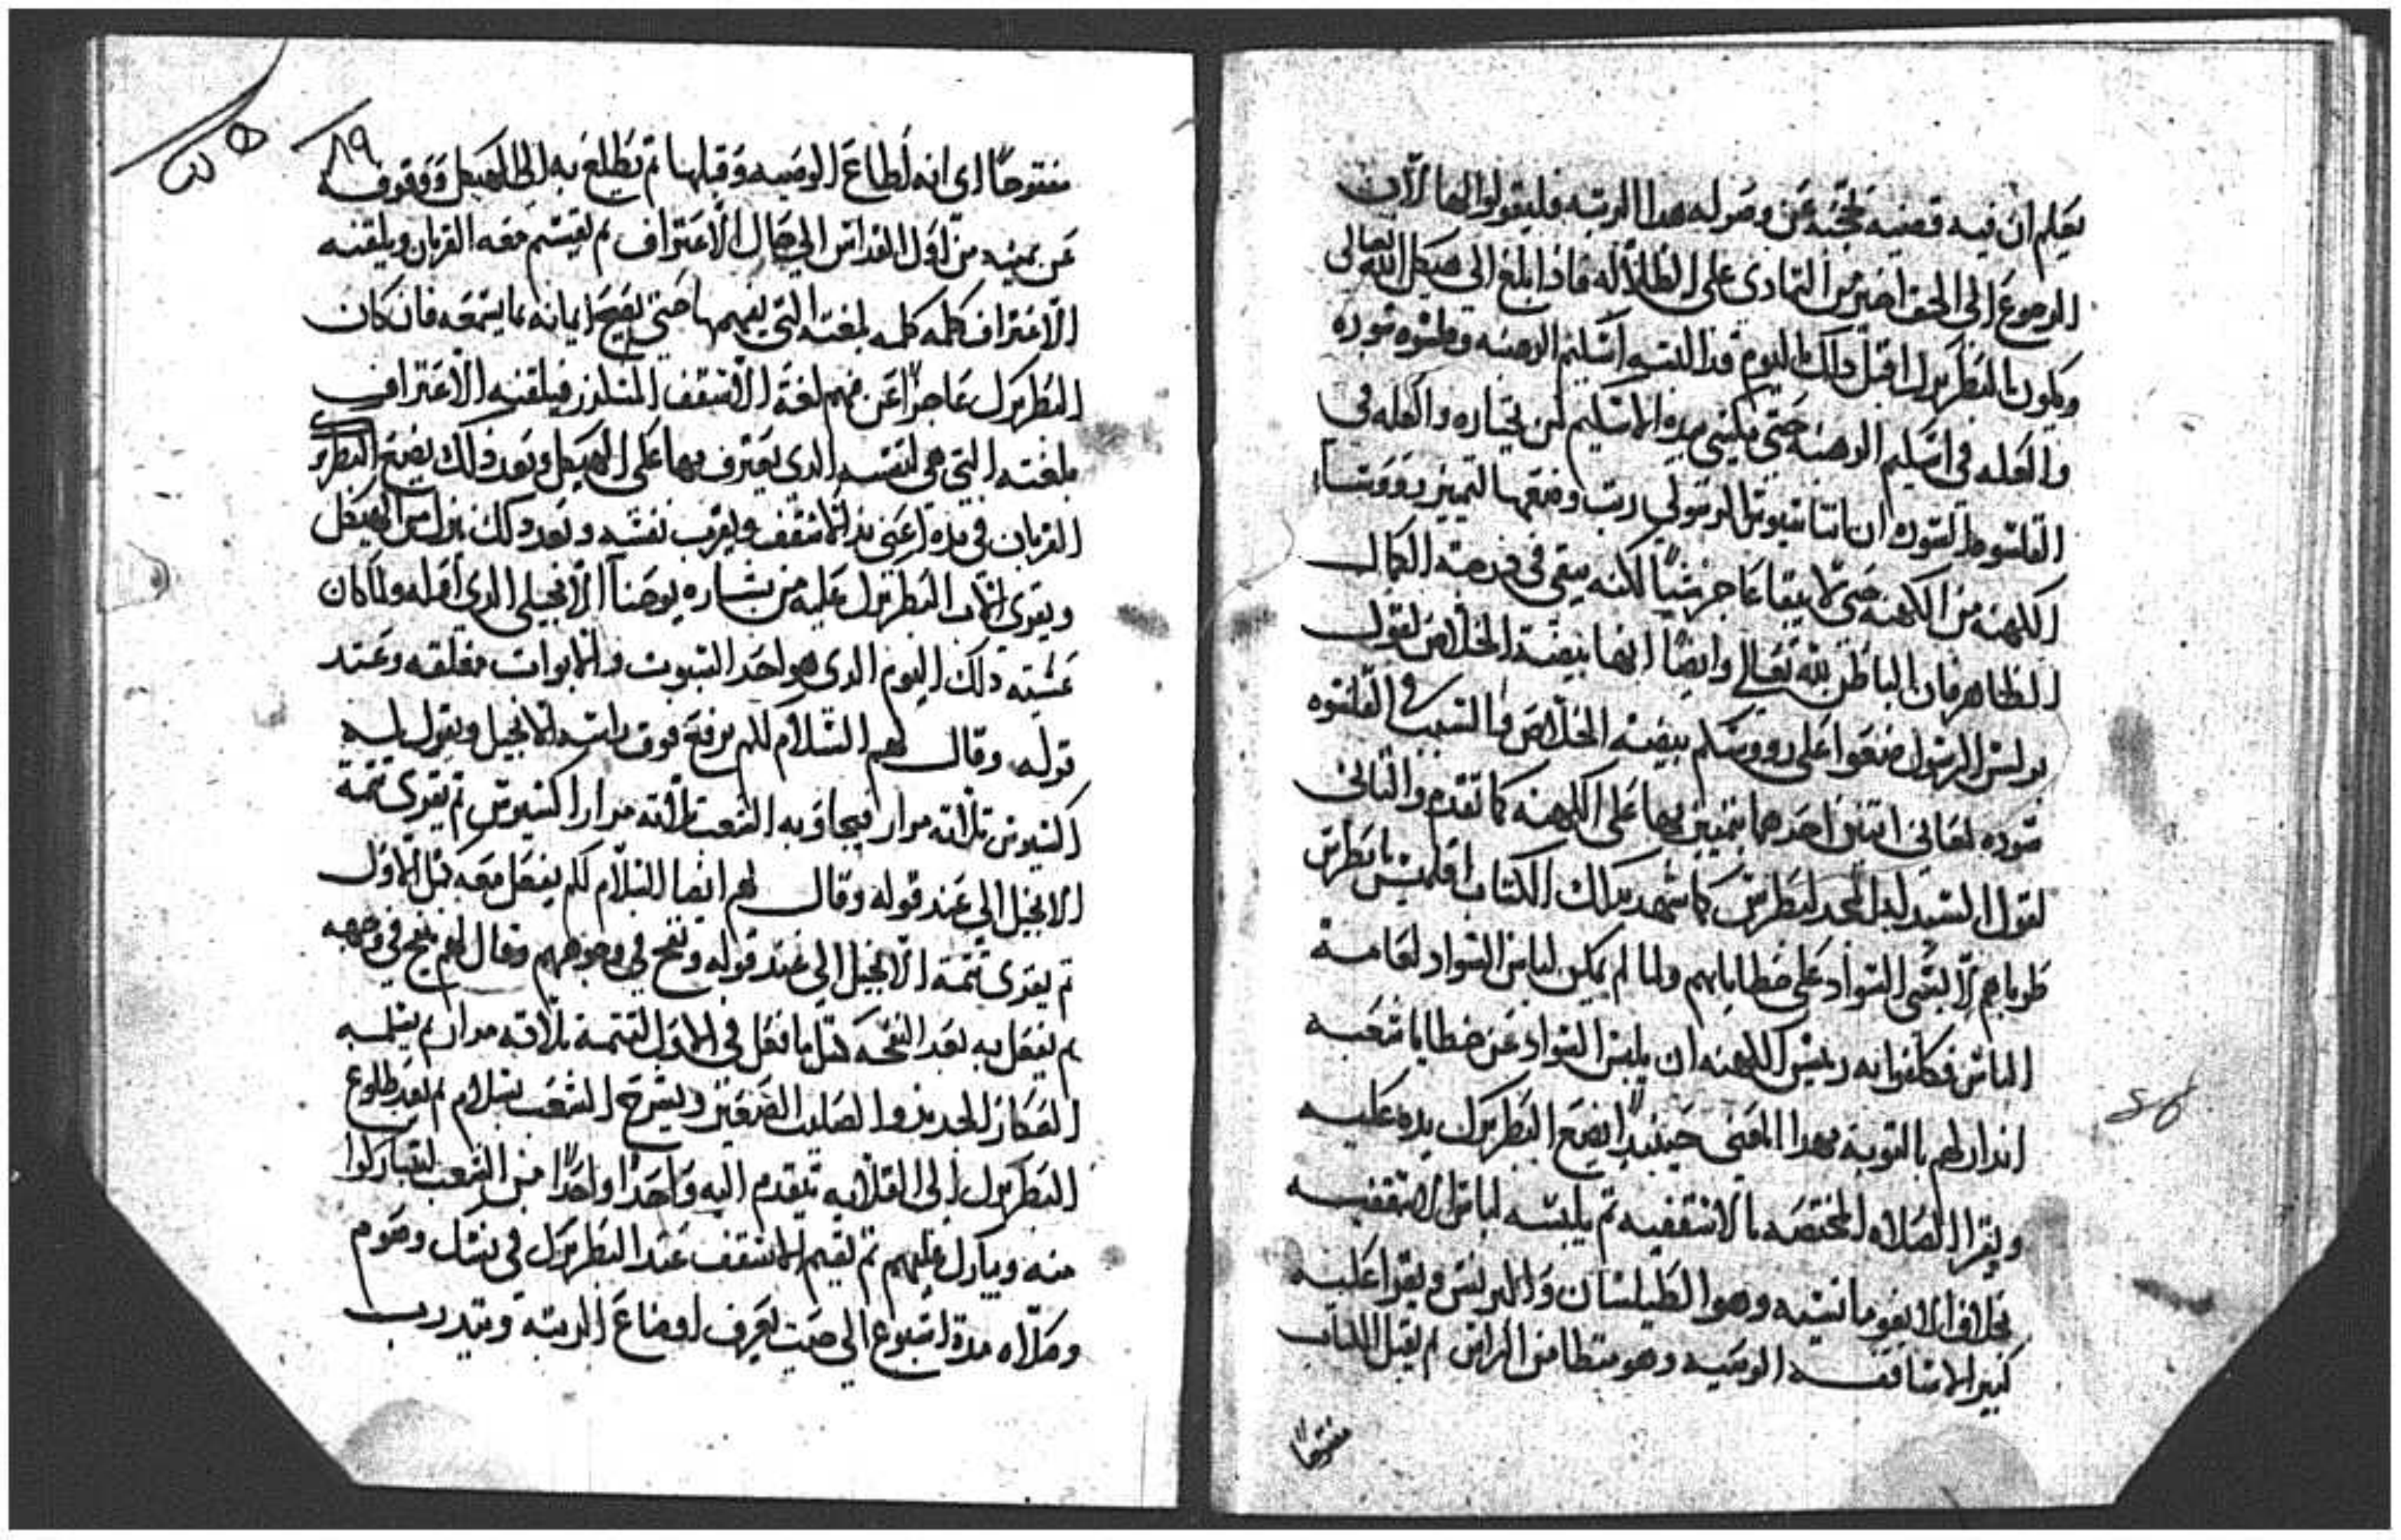 يعلم ان فيه قضيه تحجبه عن وصوله هدا الرتبه فليقولوا لها لان
الرجوع الى الحق اخير من التمادى على الظلاله فادا بلغ الى هيكل الله تعالى
ويكون البطريرك اقبل دلك اليوم قد البسه اسكيم الرهبنه وقلنسوه سوده
والعله فى اسكيم الرهبنه حتى يكتسى مره الاسكيم لمن يختاره والعله فى
القلنسوه السوده ان اتناسيوس الرسولي رتب وضعها لتميز رووسا
الكهنه من الكهنه حتى لا يبقا عاجز شيا لكنه يبقى فى درجته الكمال
الظاهر فان الباطن لله تعالي وايضا انها بيضة الخلاص لقول
بولس الرسول ضعوا على رووسكم بيضة الخلاص والسبب في القلنسوه
سوده لمعاني اتنين احدهما يتميز بها على الكهنه كما تقدم والتاني
لقول السيد له المجد لبطرس كما شهد بدلك الكتاب اقليمس يا بطرس
طوباهم لابسى السواد على خطاياهم ولما لم يمكن لباس السواد لعامة
الناس فكلفوا به رييس الكهنه ان يلبس السواد عن خطايا شعبه
اندار لهم بالتوبة بهدا المعنى حينيدا يضع البطريرك يده عليه
ويقرا الصلاه المختصه بالاسقفيه تم يلبسه لباس الاسقفيه
بخلاف الابغومانسيه وهوا الطيلسان والبرنس ويقرا عليه
كبير الاساقفه الوصيه وهو متطامن الراس تم يقبل الكتاب
مفتوحا
٨٩
مفتوحا اى انه اطاع الوصيه وقبلها تم يطلع به الى الهيكل ووقوفه
عن يمينه من اول القداس الي حال الاعتراف تم يقسم معه القربان ويلقنه
الاعتراف كلمه كلمه بلغته التي يفهمها حتى يصح ايمانه بما يسمعه فان كان
البطريرك عاجزا عن فهم لغة الاسقف المتلمد فيلقنه الاعتراف
بلغته التي هي لنفسه الدى يعترف بها على الهيكل وبعد دلك يضع البطريرك
القربان فى يده اعنى يد الاسقف ويقرب نفسه وبعد دلك ينزل من الهيكل
ويقرى الاب البطريرك عليه من بشاره يوحنا الانجيلى الدى اوله ولما كان
عشية دلك اليوم الدى هو احد السبوت والابواب مغلقه وعند
قوله وقال لهم السلام لكم يرفع فوق راسه الانجيل ويقول له
اكسيوس تلاته مرار فيجاوبه الشعب تلاته مرار اكسيوس تم يقرى تتمة
الانجيل الي عند قوله وقال لهم ايضا السلام لكم يفعل معه مثل الاول
تم يقرى تتمة الانجيل الي عند قوله ونفخ في وجوههم وقال لهم ينفخ في وجهه
تم يفعل به بعد النفخه متل ما فعل فى الاول لتتمة تلاته مرار تم يسلمه
العكاز الحديد والصليب الصغير ويسرح الشعب بسلام تم بعد طلوع
البطريرك الى القلايه يتقدم اليه واحدا واحدا من الشعب ليتباركوا
منه ويبارك عليهم تم يقيم الاسقف عند البطريرك فى نسك وصوم
وصلاه مدة اسبوع الى حيت يعرف اوضاع الرتبه ويتدرب